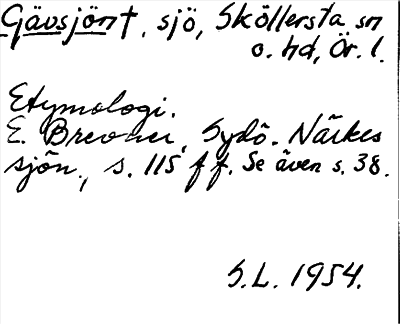 Gävsjön†, sjö, Sköllersta sn
o. hd, Ör. l.
Etymologi.
E. Brevner, Sydö. Närkes
sjön., s. 115 ff. Se även s. 38.
S.L. 1954.